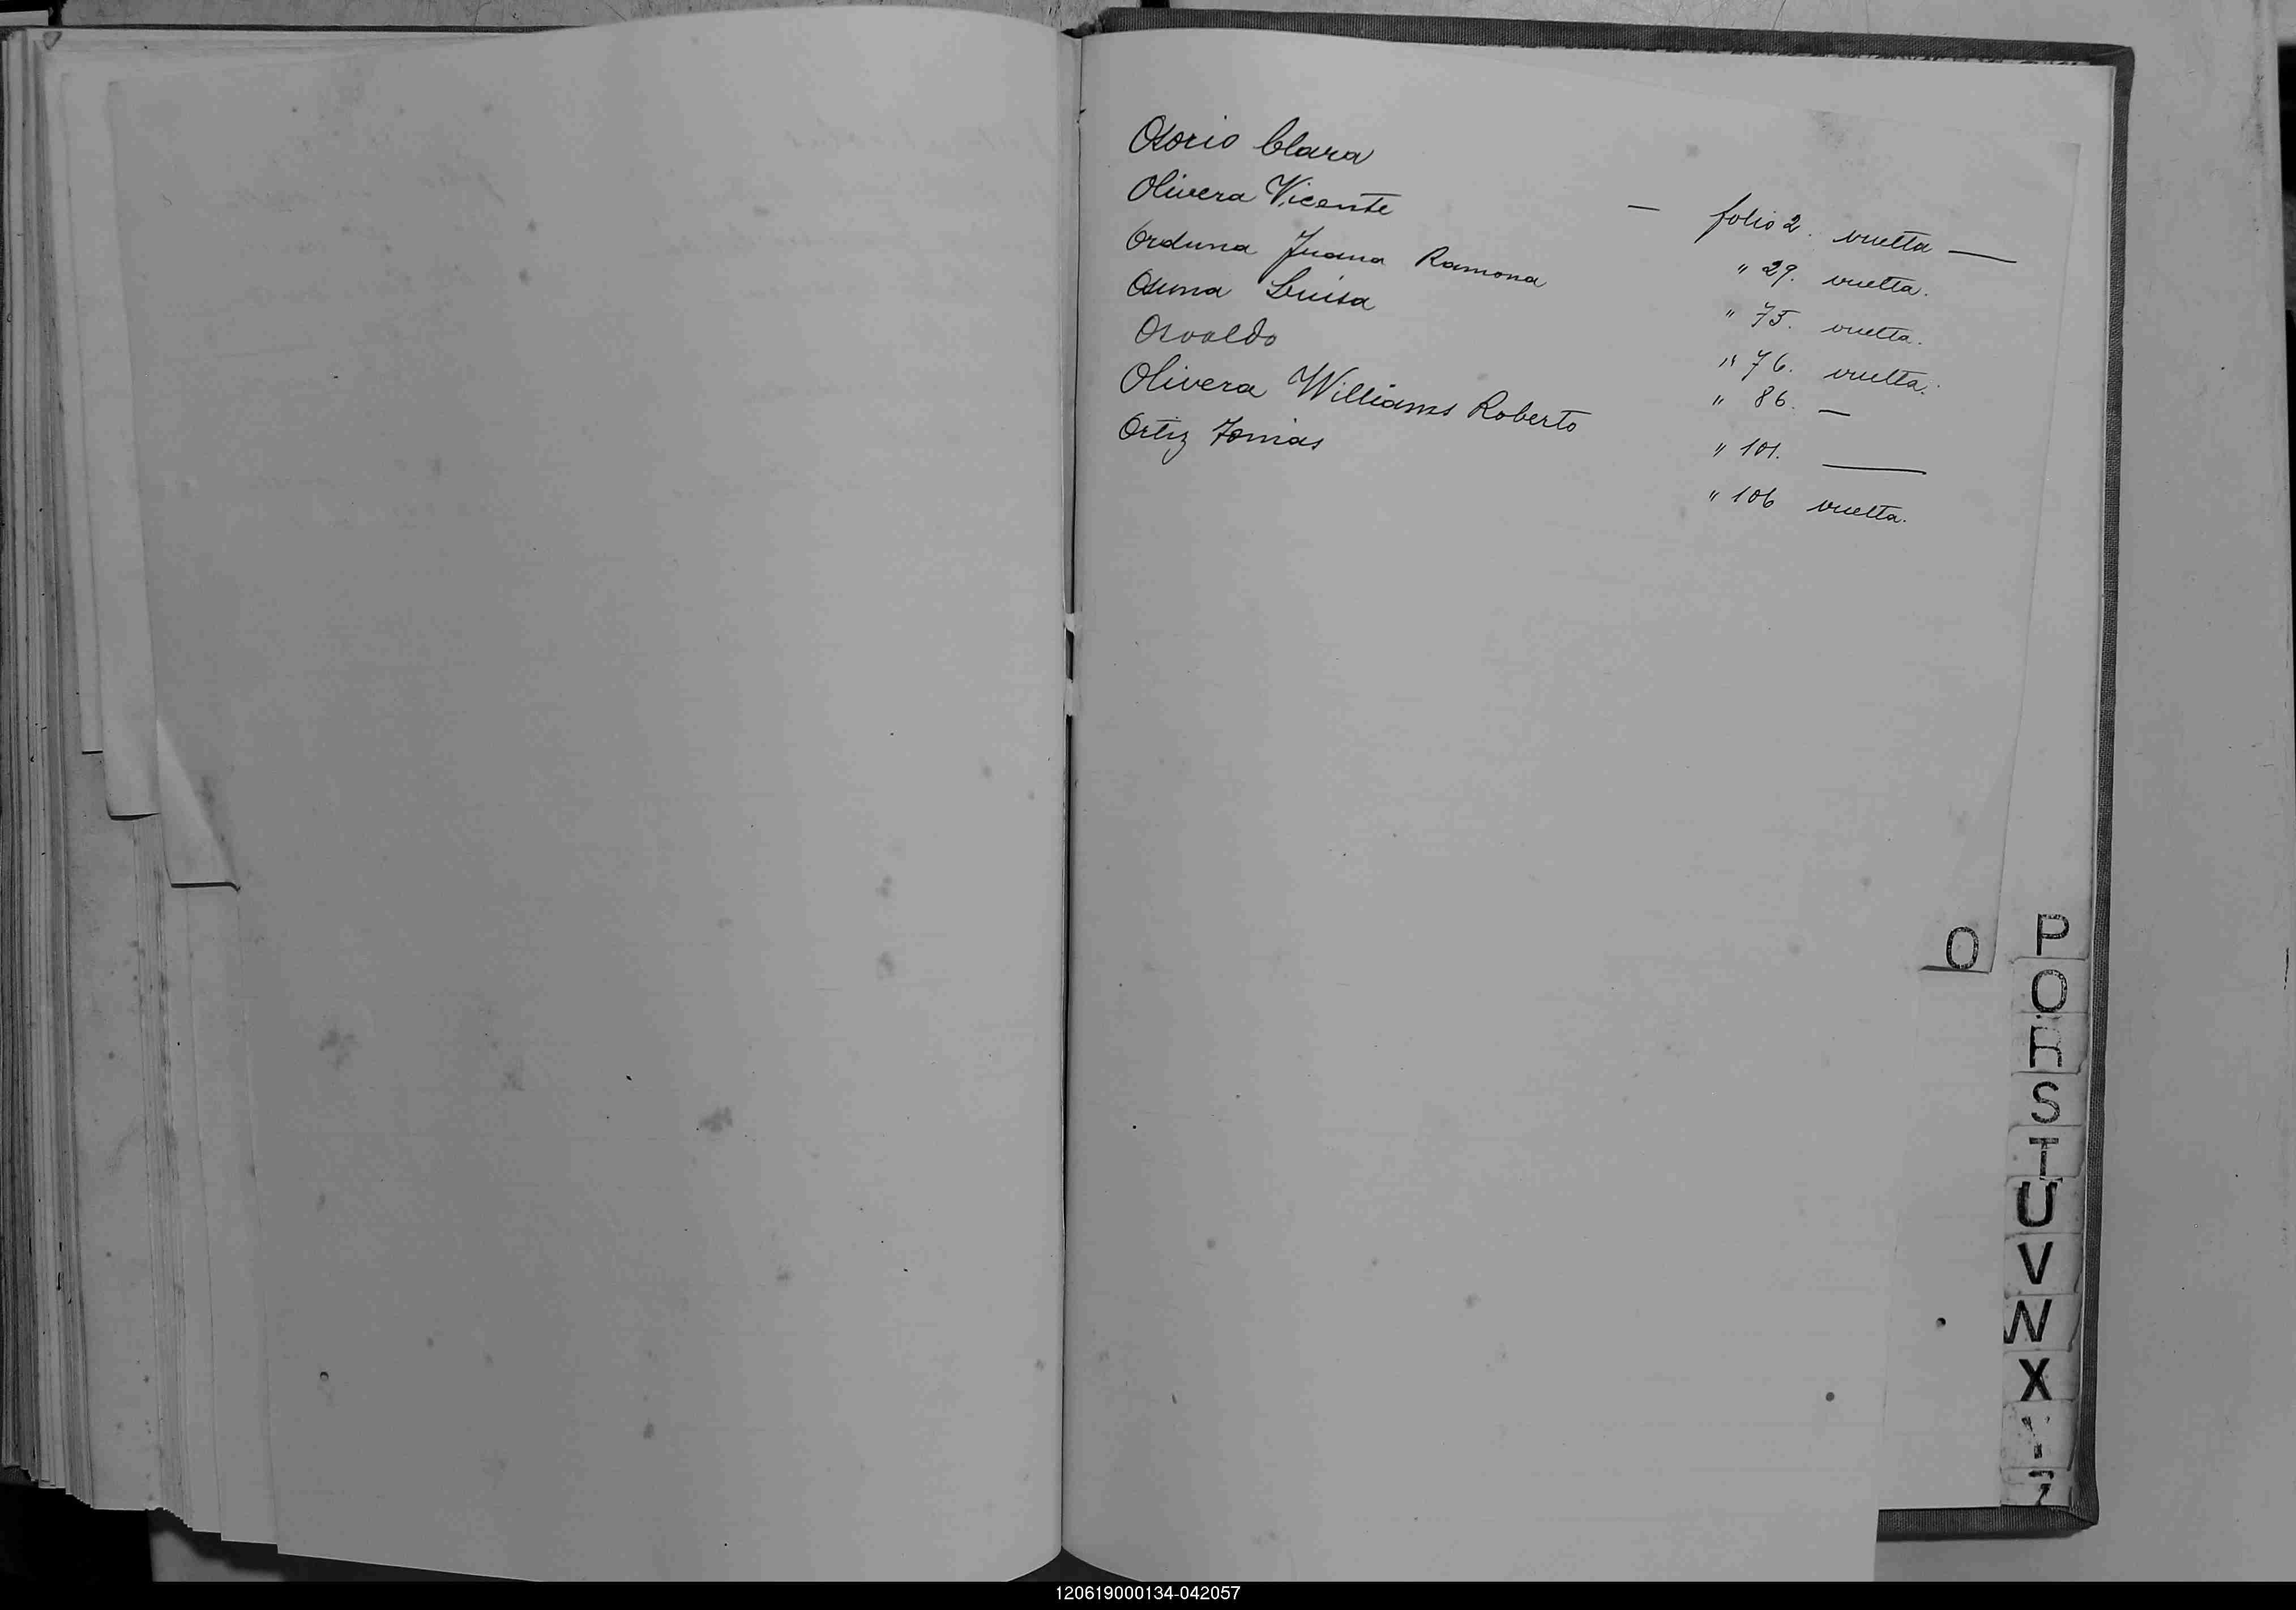 Osorio Clara — folio 2. vuelta —
Olivera Vicente " 29. vuelta.
Orduna Juana Ramona " 75. vuelta.
Osuna Luisa " 76. vuelta.
Osvaldo " 86. —
Olivera Williams Roberto " 101. —
Ortiz Tomas " 106 vuelta.
O
P
Q
R
S
T
U
V
W
X
Y
Z
120619000134-042057